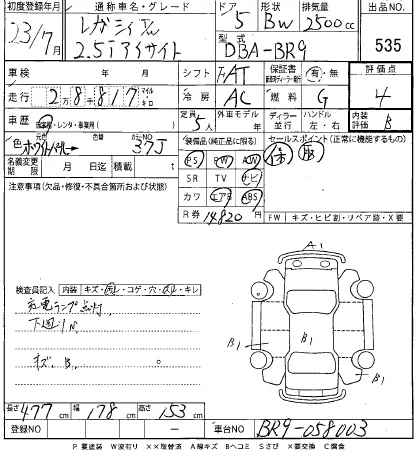 初度登録年月 通称車名・グレード ドア 形状 排気量 出品NO
23/7月 レガシィ 2.5iアイサイト 5 BW 2500cc 535
型式 DBA-BR9
車検 年 月 シフト AT 保証書 有・無 評価点
走行 2万8千817 マイル キロ 冷房 AC 燃料 G 4
車歴 自家用・レンタ・事業用( ) 定員 5人 外車モデル 年 ディーラー 並行 ハンドル 左・右 内装評価 B
色 元色 ホワイトパール 色替 カラーNO 37J 装備品(純正品に限る) セールスポイント(正常に機能するもの)
名義変更期限 月 日迄 積載 t PS PW AW
注意事項(欠品・修復・不具合箇所および状態) SR TV ナビ
カワ エアB ABS
R券 14820 円 FW キズ・ヒビ割・リペア跡・X要
A1
検査員記入 内装 キズ・汚・コゲ・穴・スレ・キレ
充電ランプ点灯
下廻りN
キズ、B
B1 B1 B1
長さ 477 cm 幅 178 cm 高さ 153 cm
登録NO ー 車台NO BR9-058003
P 要塗装 W波有り ××取替済 A線キズ Bヘコミ Sさび ×要交換 C腐食